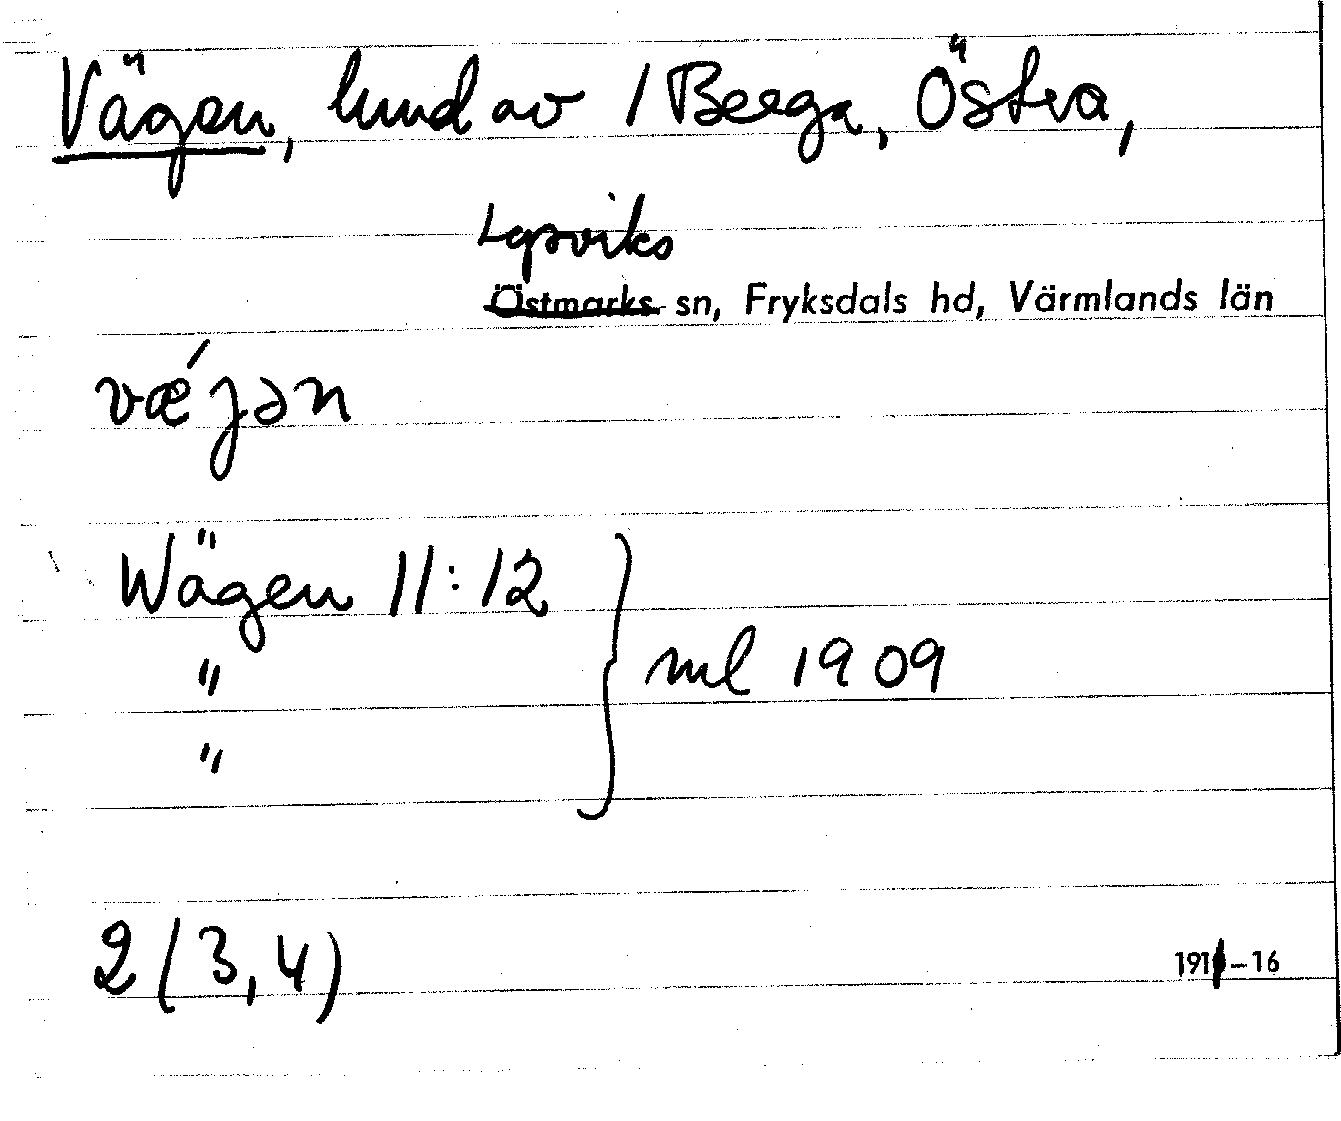 Vägen, hmd av 1 Berga, Östra,
Lysviks
Östmarks sn, Fryksdals hd, Värmlands län
vǽjən
Wägen 11:12
" ml 1909
"
2 (3,4)
1911-16